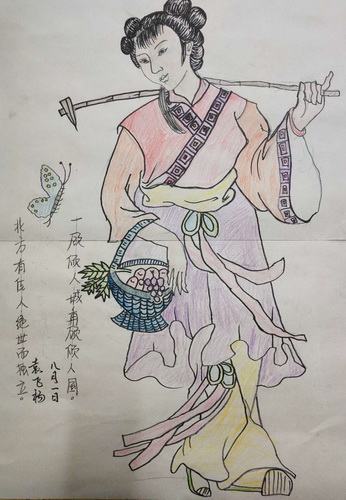 北方有佳人绝世而独立。
一顾倾人城再顾倾人国。
八月一日
袁飞杨